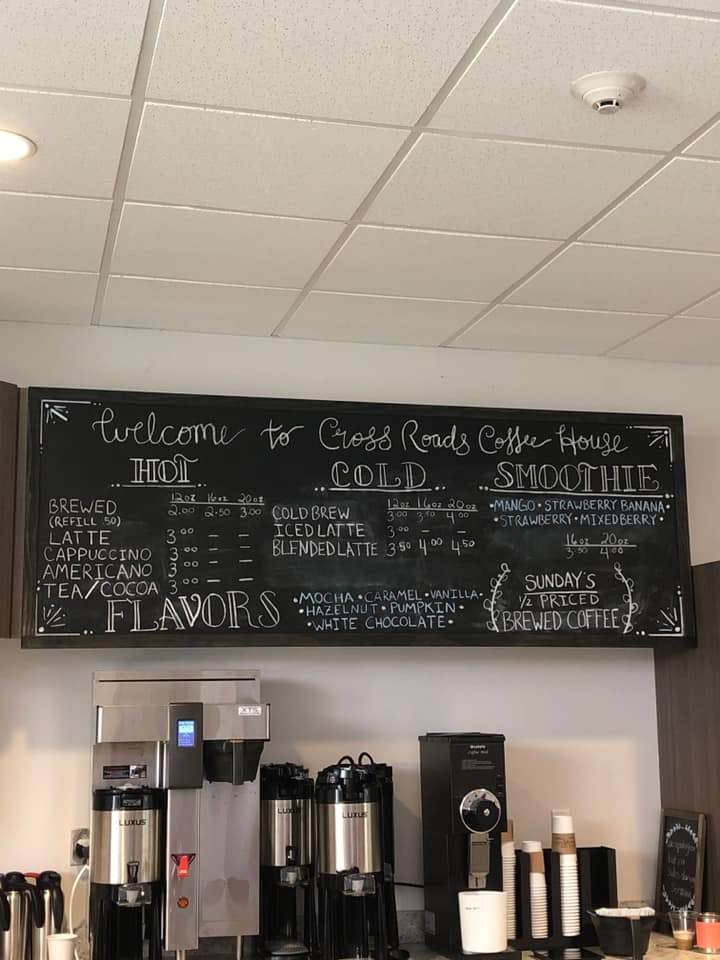 Welcome to Cross Roads Coffee House
HOT
12oz 16oz 20oz
BREWED 2.00 2.50 3.00
(REFILL .50)
LATTE 3.00 — —
CAPPUCCINO 3.00 — —
AMERICANO 3.00 — —
TEA/COCOA 3.00 — —
COLD
12oz 16oz 20oz
COLD BREW 3.00 3.50 4.00
ICED LATTE 3.00 — —
BLENDED LATTE 3.50 4.00 4.50
SMOOTHIE
•MANGO•STRAWBERRY BANANA•
•STRAWBERRY•MIXED BERRY•
16oz 20oz
3.50 4.00
FLAVORS
•MOCHA•CARAMEL•VANILLA•
•HAZELNUT•PUMPKIN•
•WHITE CHOCOLATE•
SUNDAY'S
1/2 PRICED
BREWED COFFEE
LUXUS
LUXUS
LUXUS